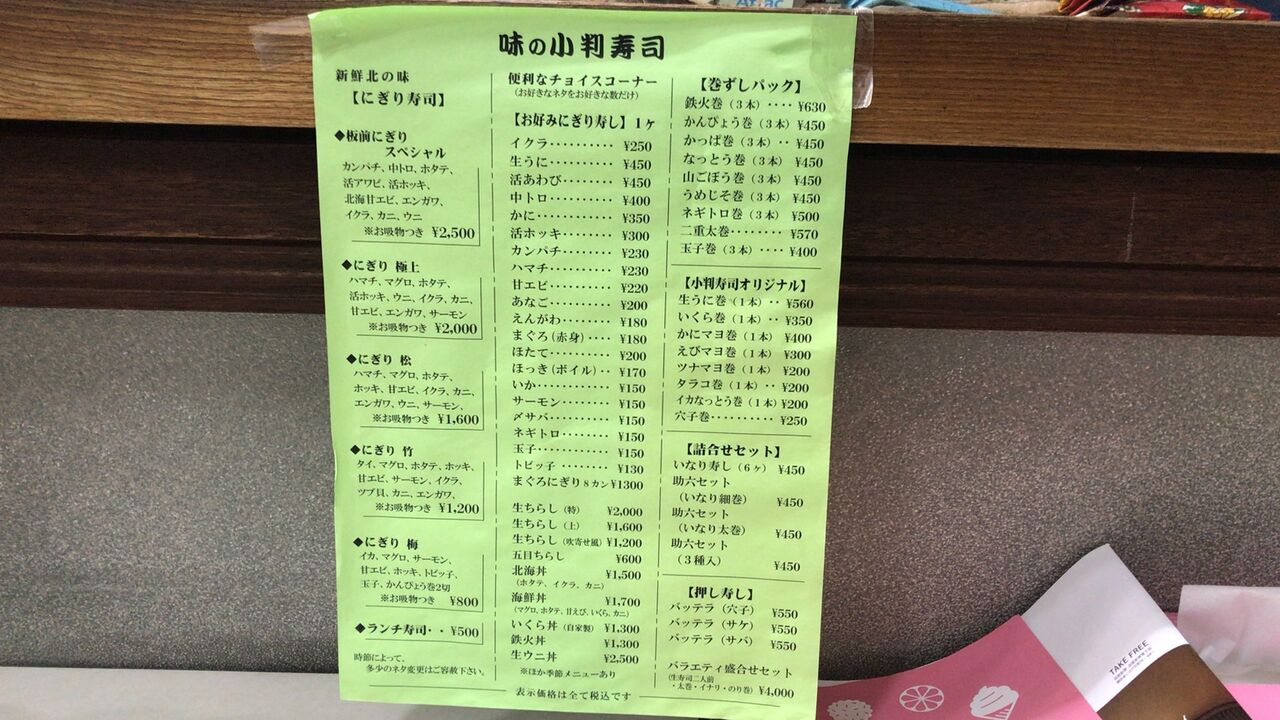 味の小判寿司
新鮮北の味
【にぎり寿司】
◆板前にぎり
スペシャル
カンパチ、中トロ、ホタテ、
活アワビ、活ホッキ、
北海甘エビ、エンガワ、
イクラ、カニ、ウニ
※お吸物つき ¥2,500
◆にぎり 極上
ハマチ、マグロ、ホタテ、
活ホッキ、ウニ、イクラ、カニ、
甘エビ、エンガワ、サーモン
※お吸物つき ¥2,000
◆にぎり 松
ハマチ、マグロ、ホタテ、
ホッキ、甘エビ、イクラ、カニ、
エンガワ、ウニ、サーモン、
※お吸物つき ¥1,600
◆にぎり 竹
タイ、マグロ、ホタテ、ホッキ、
甘エビ、サーモン、イクラ、
ツブ貝、カニ、エンガワ、
※お吸物つき ¥1,200
◆にぎり 梅
イカ、マグロ、サーモン、
甘エビ、ホッキ、トビッ子、
玉子、かんぴょう巻2切
※お吸物つき ¥800
◆ランチ寿司・・¥500
時節によって、
多少のネタ変更はご容赦下さい。
便利なチョイスコーナー
(お好きなネタをお好きな数だけ)
【お好みにぎり寿し】1ヶ
イクラ・・・・・・・・・・ ¥250
生うに・・・・・・・・・・ ¥450
活あわび・・・・・・・・ ¥450
中トロ・・・・・・・・・・ ¥400
かに・・・・・・・・・・・・ ¥350
活ホッキ・・・・・・・・ ¥300
カンパチ・・・・・・・・ ¥230
ハマチ・・・・・・・・・・ ¥230
甘エビ・・・・・・・・・・ ¥220
あなご・・・・・・・・・・ ¥200
えんがわ・・・・・・・・ ¥180
まぐろ(赤身)・・・・ ¥180
ほたて・・・・・・・・・・ ¥200
ほっき(ボイル)・・ ¥170
いか・・・・・・・・・・・・ ¥150
サーモン・・・・・・・・ ¥150
〆サバ・・・・・・・・・・ ¥150
ネギトロ・・・・・・・・ ¥150
玉子・・・・・・・・・・・・ ¥150
トビッ子・・・・・・・・ ¥130
まぐろにぎり8カン¥1300
生ちらし(特) ¥2,000
生ちらし(上) ¥1,600
生ちらし(吹寄せ風)¥1,200
五目ちらし ¥600
北海丼 ¥1,500
(ホタテ、イクラ、カニ)
海鮮丼 ¥1,700
(マグロ、ホタテ、甘えび、いくら、カニ)
いくら丼(自家製) ¥1,300
鉄火丼 ¥1,300
生ウニ丼 ¥2,500
※ほか季節メニューあり
【巻ずしパック】
鉄火巻(3本)・・・・ ¥630
かんぴょう巻(3本)¥450
かっぱ巻(3本)・・ ¥450
なっとう巻(3本) ¥450
山ごぼう巻(3本) ¥450
うめじそ巻(3本) ¥450
ネギトロ巻(3本) ¥500
二重太巻・・・・・・・・ ¥570
玉子巻(3本)・・・・ ¥400
【小判寿司オリジナル】
生うに巻(1本)・・ ¥560
いくら巻(1本)・・ ¥350
かにマヨ巻(1本) ¥400
えびマヨ巻(1本) ¥300
ツナマヨ巻(1本) ¥200
タラコ巻(1本)・・ ¥200
イカなっとう巻(1本)¥200
穴子巻・・・・・・・・・・ ¥250
【詰合せセット】
いなり寿し(6ヶ) ¥450
助六セット
(いなり細巻) ¥450
助六セット
(いなり太巻) ¥450
助六セット
(3種入) ¥450
【押し寿し】
バッテラ(穴子) ¥550
バッテラ(サケ) ¥550
バッテラ(サバ) ¥550
バラエティ盛合せセット
(生寿司二人前
・太巻・イナリ・のり巻) ¥4,000
表示価格は全て税込です
TAKE FREE